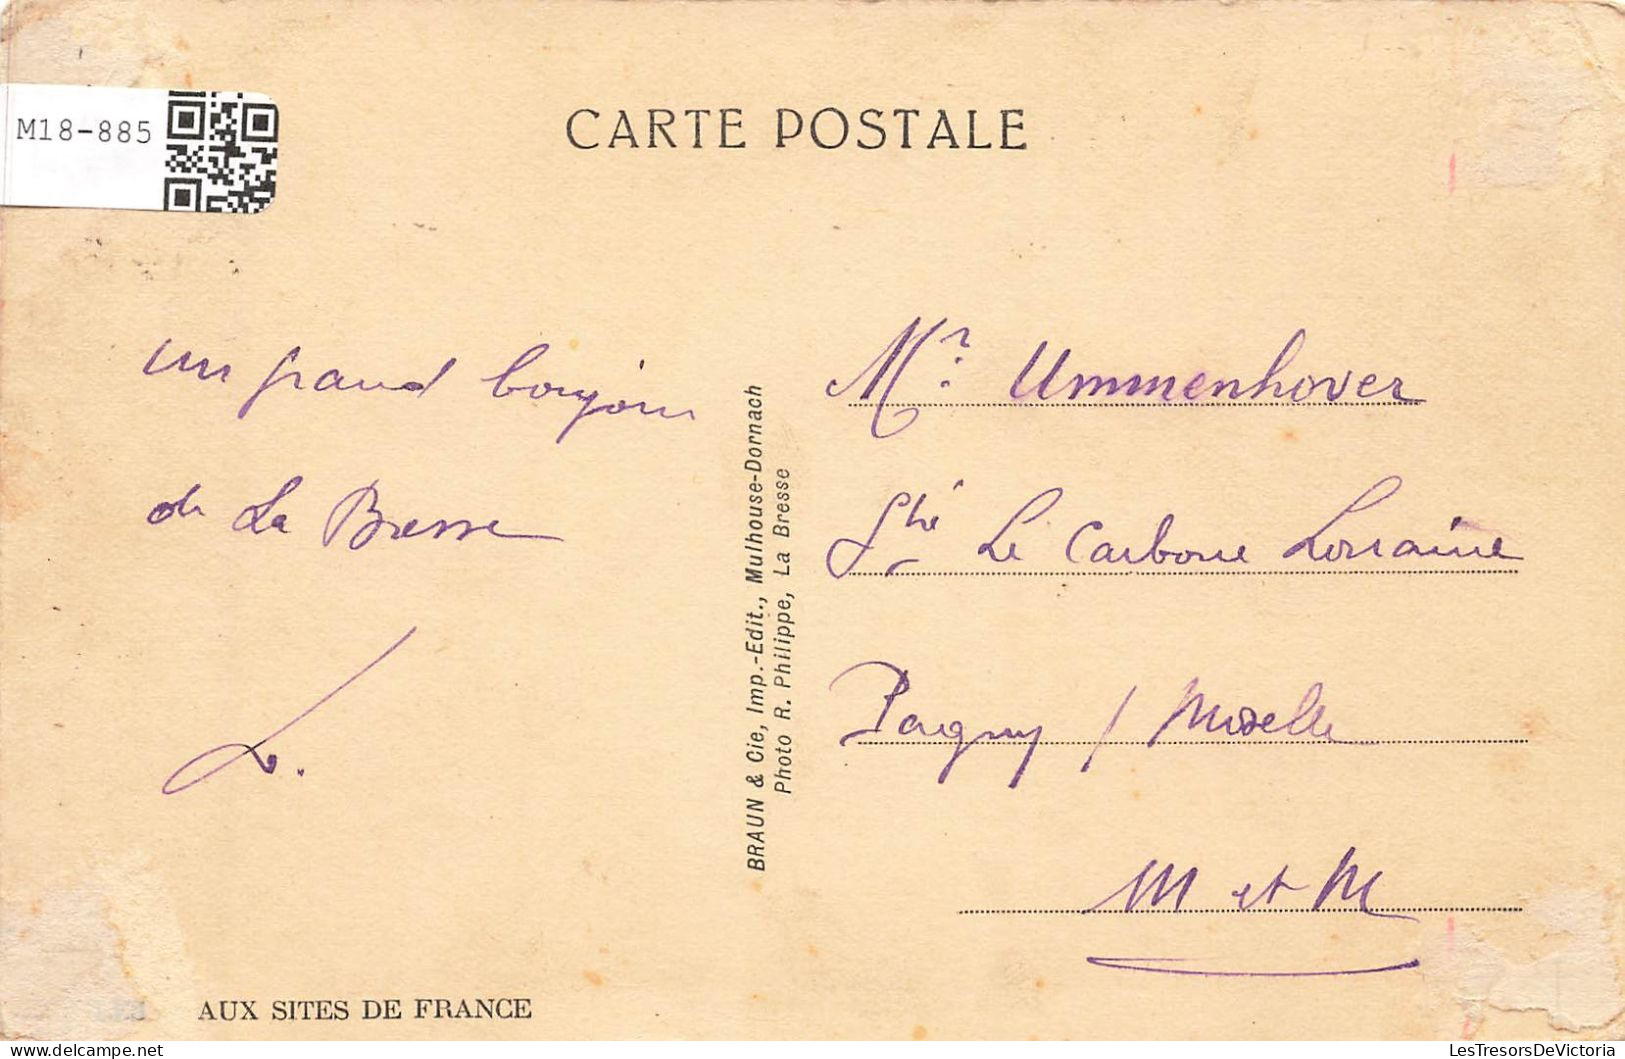 M18-885
CARTE POSTALE
un grand bonjour
de La Bresse
L.
BRAUN & Cie, Imp.-Edit., Mulhouse-Dornach
Photo R. Philippe, La Bresse
Mr. Ummenhover
Sté Le Carbone Lorraine
Pagny / Moselle
M et M
AUX SITES DE FRANCE
LesTresorsDeVictoria